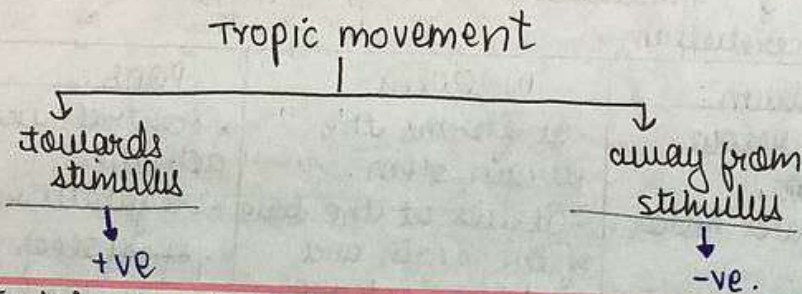 Tropic movement
towards
stimulus
away from
stimulus
+ve
-ve.